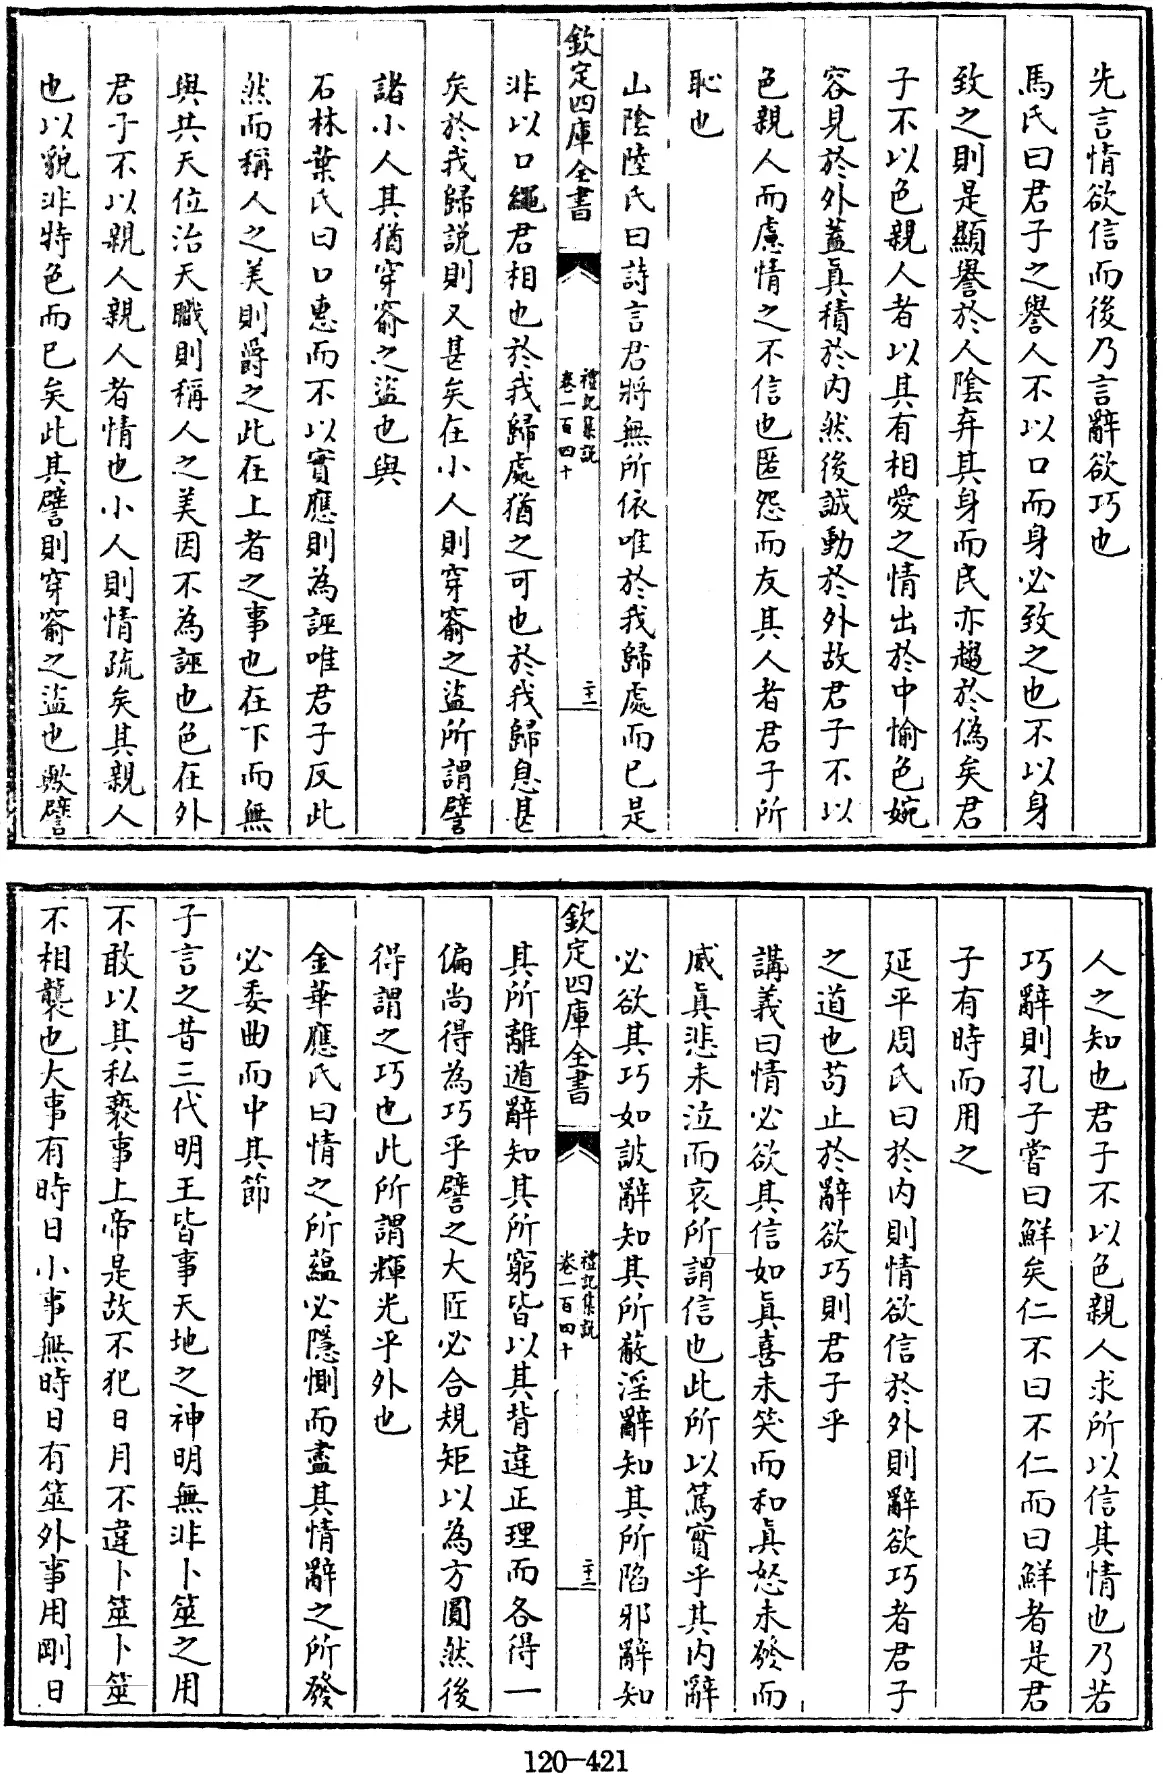 先言情欲信而後乃言辭欲巧也
馬氏曰君子之譽人不以口而身必致之也不以身
致之則是顯譽於人陰弃其身而民亦趨於偽矣君
子不以色親人者以其有相愛之情出於中愉色婉
容見於外蓋眞積於内然後誠動於外故君子不以
色親人而慮情之不信也匿怨而友其人者君子所
恥也
山陰陸氏曰詩言君將無所依唯於我歸處而已是
欽定四庫全書
禮記集說
卷一百四十
二十二
非以口繩君相也於我歸處猶之可也於我歸息甚
矣於我歸說則又甚矣在小人則穿窬之盜所謂譬
諸小人其猶穿窬之盜也與
石林葉氏曰口惠而不以實應則為誣唯君子反此
然而稱人之美則爵之此在上者之事也在下而無
與共天位治天職則稱人之美因不為誣也色在外
君子不以親人親人者情也小人則情疏矣其親人
也以貌非特色而已矣此其譬則穿窬之盜也歟譬
人之知也君子不以色親人求所以信其情也乃若
巧辭則孔子嘗曰鮮矣仁不曰不仁而曰鮮者是君
子有時而用之
延平周氏曰於内則情欲信於外則辭欲巧者君子
之道也苟止於辭欲巧則君子乎
講義曰情必欲其信如眞喜未笑而和眞怒未發而
威眞悲未泣而哀所謂信也此所以篤實乎其内辭
必欲其巧如詖辭知其所蔽淫辭知其所陷邪辭知
欽定四庫全書
禮記集說
卷一百四十
二十三
其所離遁辭知其所窮皆以其背違正理而各得一
偏尚得為巧乎譬之大匠必合規矩以為方圓然後
得謂之巧也此所謂輝光乎外也
金華應氏曰情之所蘊必隱惻而盡其情辭之所發
必委曲而中其節
子言之昔三代明王皆事天地之神明無非卜筮之用
不敢以其私褻事上帝是故不犯日月不違卜筮卜筮
不相襲也大事有時日小事無時日有筮外事用剛日
120-421